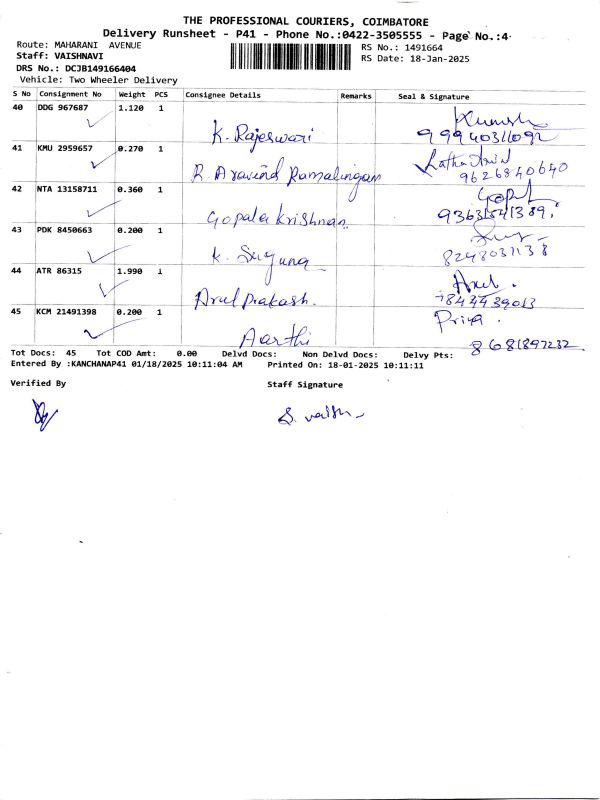 THE PROFESSIONAL COURIERS, COIMBATORE
Delivery Runsheet - P41 - Phone No.:0422-3505555 - Page No.:4
Route: MAHARANI AVENUE
RS No.: 1491664
Staff: VAISHNAVI
RS Date: 18-Jan-2025
DRS No.: DCJB149166404
Vehicle: Two Wheeler Delivery
S No Consignment No Weight PCS Consignee Details Remarks Seal & Signature
40 DDG 967687 1.120 1
K. Rajeswari
99940311092
41 KMU 2959657 0.270 1
R Aravind Ramalingam
9626840640
42 NTA 13158711 0.360 1
Gopal
Gopala Krishnan
43 PDK 8450663 0.200 1
K. Suguna
8248031138
44 ATR 86315 1.990 1
Arul
Arul Prakash.
7844439013
45 KCM 21491398 0.200 1
Priya.
Aarthi
8681897232
Tot Docs: 45 Tot COD Amt: 0.00 Delvd Docs: Non Delvd Docs: Delvy Pts:
Entered By :KANCHANAP41 01/18/2025 10:11:04 AM Printed On: 18-01-2025 10:11:11
Verified By Staff Signature
S. vaish